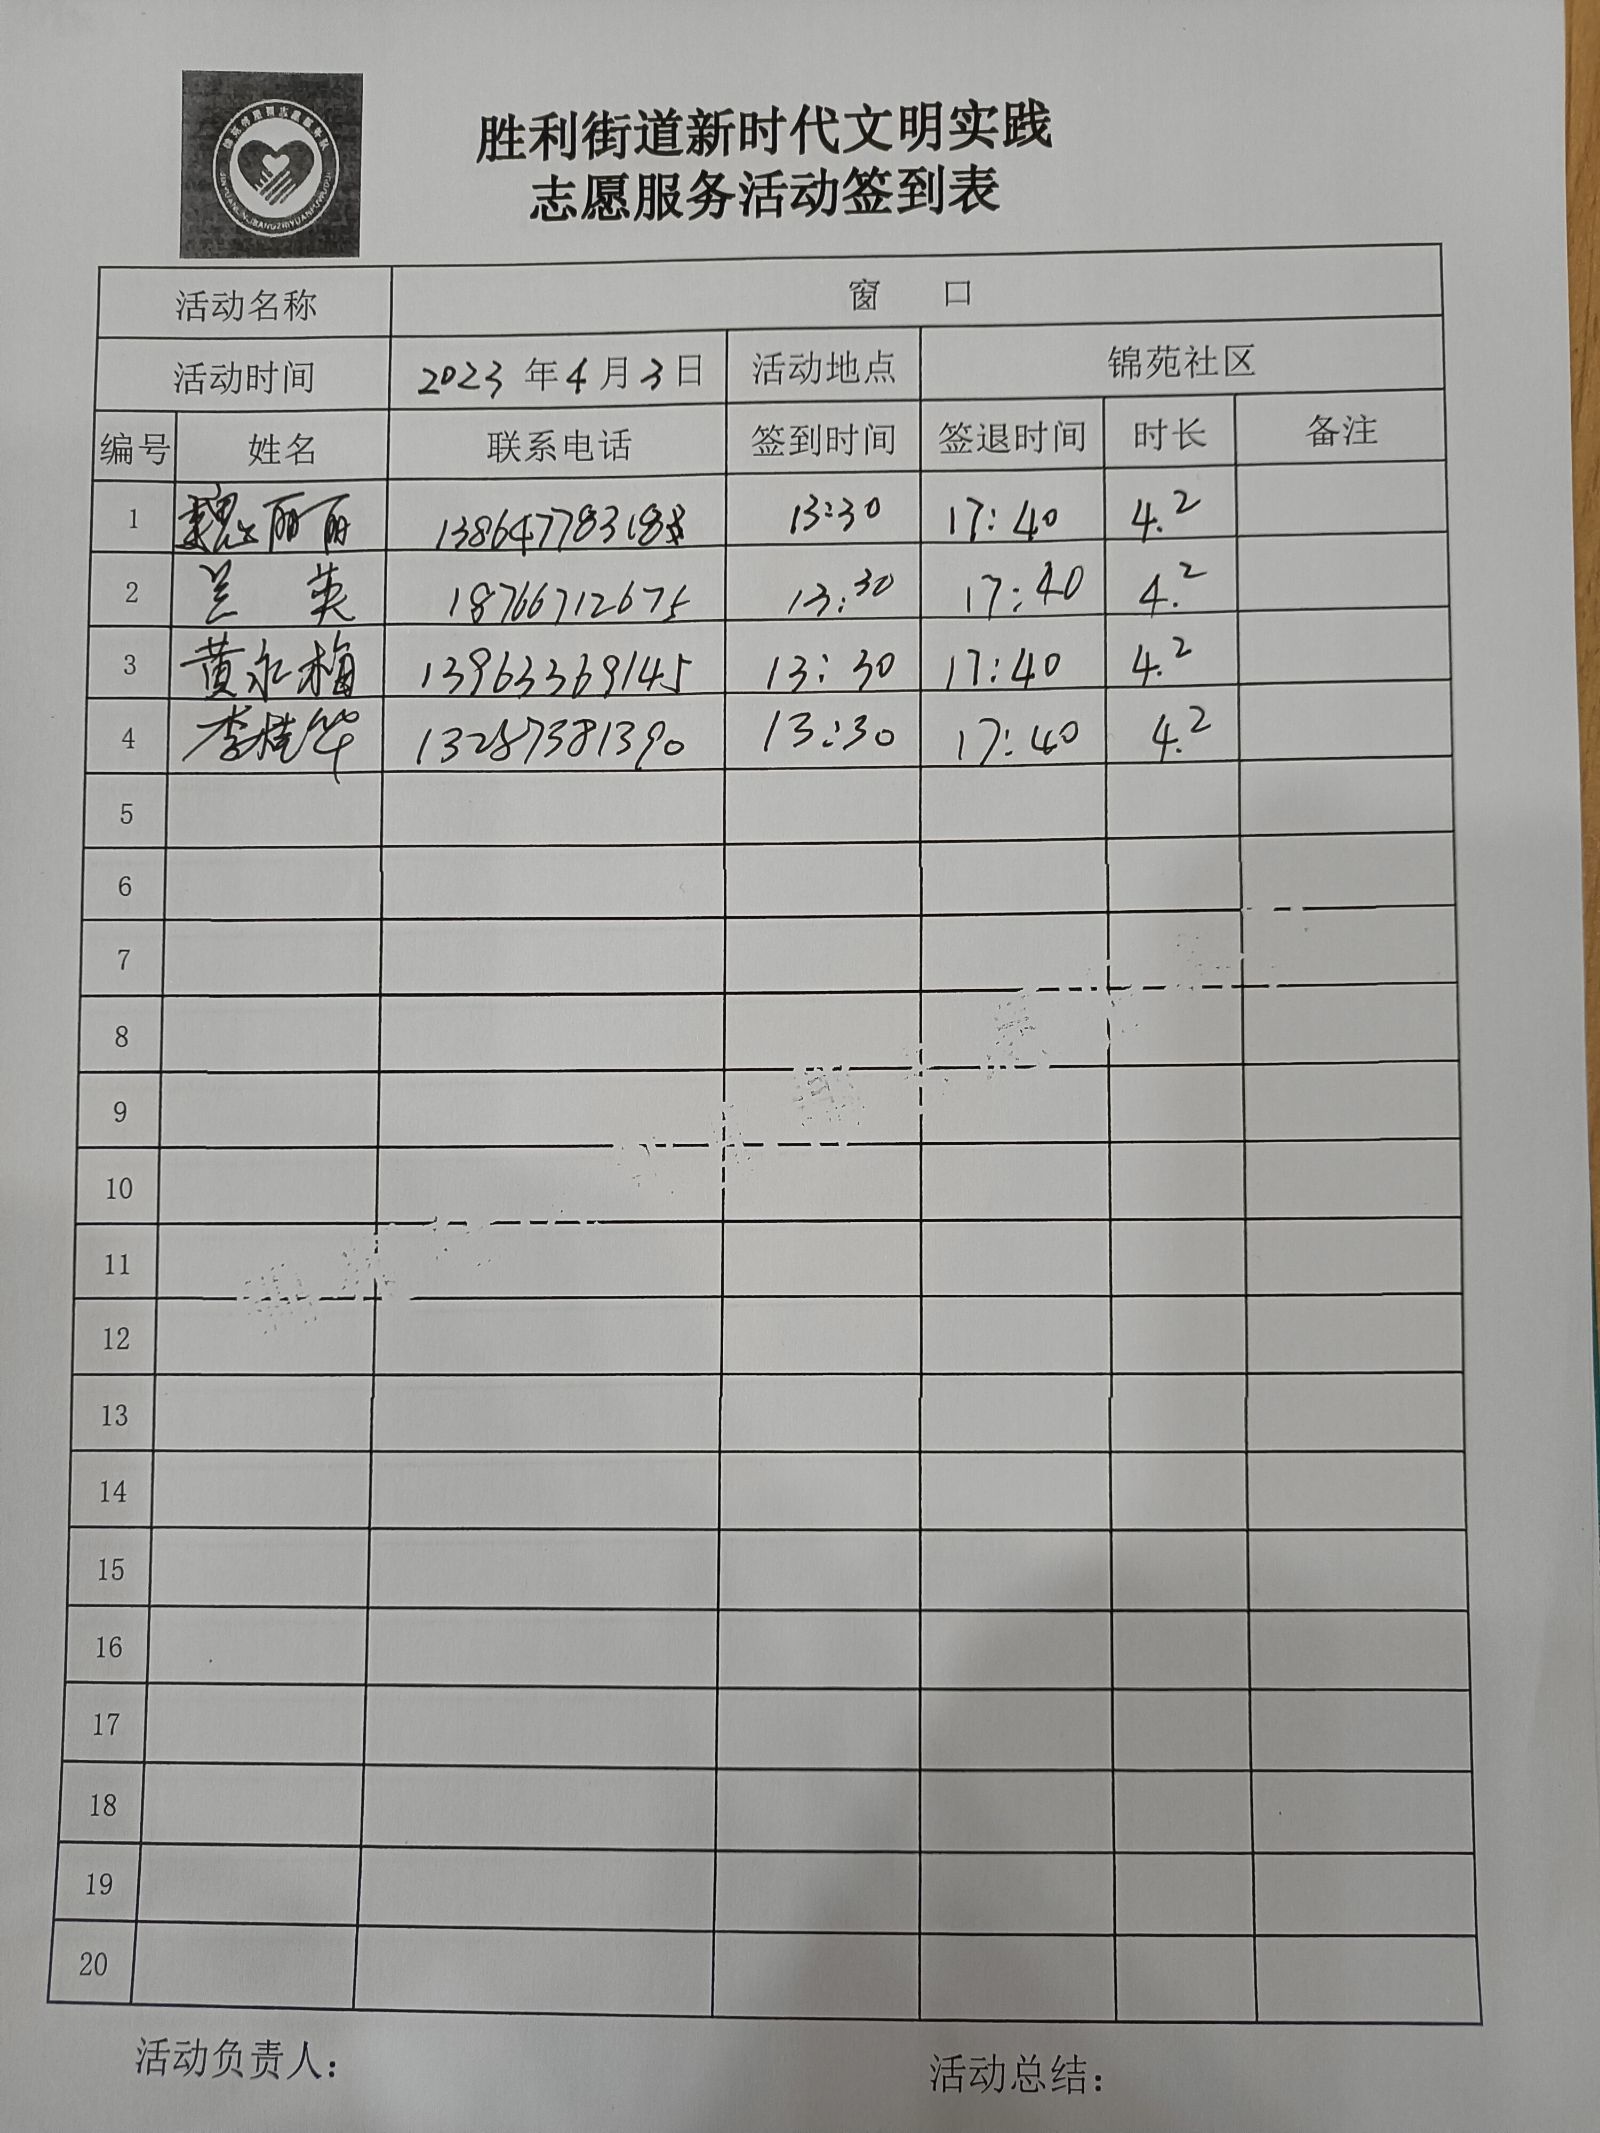 胜利街道新时代文明实践
志愿服务活动签到表
活动名称 窗 口
活动时间 2023 年 4 月 3 日 活动地点 锦苑社区
编号 姓名 联系电话 签到时间 签退时间 时长 备注
1 魏丽丽 13:30 17:40 4.2
2 兰英 18766712675 13:30 17:40 4.2
3 黄永梅 13963369145 13:30 17:40 4.2
4 李桂华 13287381390 13:30 17:40 4.2
5
6
7
8
9
10
11
12
13
14
15
16
17
18
19
20
活动负责人： 活动总结：